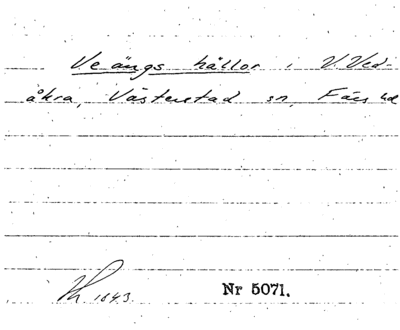 Ve ängs hällor i V. Ved-
åkra, Västerstad sn, Färs hd
1843.
Nr 5071.